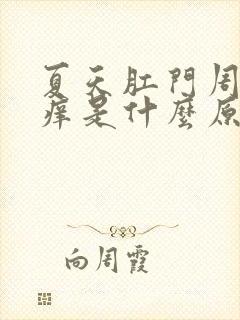 夏天肛門周
痒是什麼原
向周霞